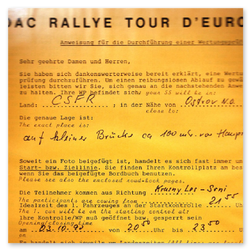 DAC RALLYE TOUR D'EURO
Anweisung für die Durchführung einer Wertungsprüf
Sehr geehrte Damen und Herren,
Sie haben sich dankenswerterweise bereit erklärt, eine Wertu
prüfung durchzuführen. Um einen reibungslosen Ablauf zu
leisten bitten wir Sie, sich genau an die nachstehenden Anwe
zu halten. Ihre WP befindet sich
Land: CSFR ; in der Nähe von Ostrov
close to:
Die genaue Lage ist:
The exact place is:
auf kleiner Brücke ca 100 m vor Haupt
Soweit ein Foto beigefügt ist, handelt es sich fast immer um
Start- bzw. Ziellinie. Die finden Ihren Kontrollplatz am bes
wenn Sie das beigefügte Bordbuch benutzen.
Please see also the enclosed road-book.
Die Teilnehmer kommen aus Richtung
The participants are coming from
Idealzeit des 1. Fahrzeuges an der Startkontrolle 21 50
The 1. car will be on the starting control at
Ihre Kontrolle/WP muß geöffnet bzw. gesperrt sein
am 03.10. von 20 50 Uhr bis 23 50